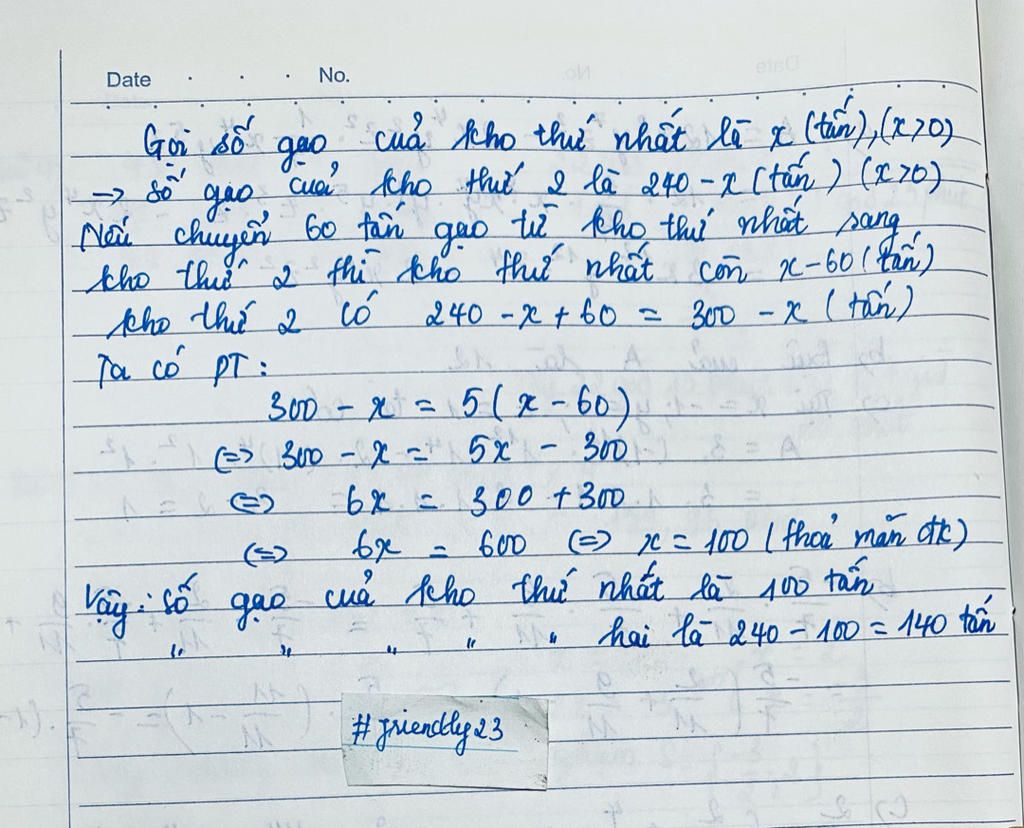 Date . . . No.
Gọi số gạo cuả kho thứ nhất là x (tấn), (x>0)
→ số gạo cuả kho thứ 2 là 240 - x (tấn) (x>0)
Nếu chuyển 60 tấn gạo từ kho thứ nhất sang
kho thứ 2 thì kho thứ nhất còn x - 60 (tấn)
kho thứ 2 có 240 - x + 60 = 300 - x (tấn)
Ta có PT:
300 - x = 5 (x - 60)
(=) 300 - x = 5x - 300
(=) 6x = 300 + 300
(=) 6x = 600 (=) x = 100 (thoả mãn đk)
Vậy: số gạo cuả kho thứ nhất là 100 tấn
" " " " " hai là 240 - 100 = 140 tấn
#friendly23